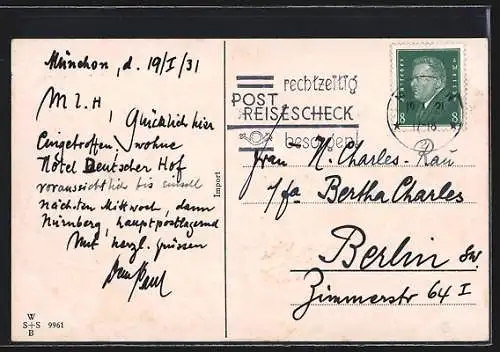 München, d. 19/I/31
M L H,
Glücklich hier
Eingetroffen, wohne
Hotel Deutscher Hof
voraussichtlich bis
nächsten Mittwoch, dann
Nürnberg, hauptpostlagernd
Mit herzl. Grüssen
W
S+S 9961
B
Import
rechtzeitig
POST
REISESCHECK
besorgen!
8 8
Frau H. Charles
Bertha Charles
Berlin SW
Zimmerstr 64 I